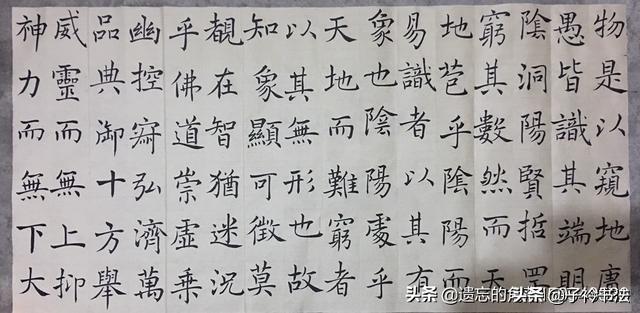 物是以窺地庸
愚皆識其端明
陰洞陽賢哲罕
窮其數然而天
地苞乎陰陽而
易識者以其有
象也陰陽處乎
天地而難窮者
以其無形也故
知象顯可徵莫
覩在智猶迷況
乎佛道崇虛乘
幽控寂弘濟萬
品典御十方舉
威靈而無上抑
神力而無下大
头条 @遗忘的
头条 @子衿书法